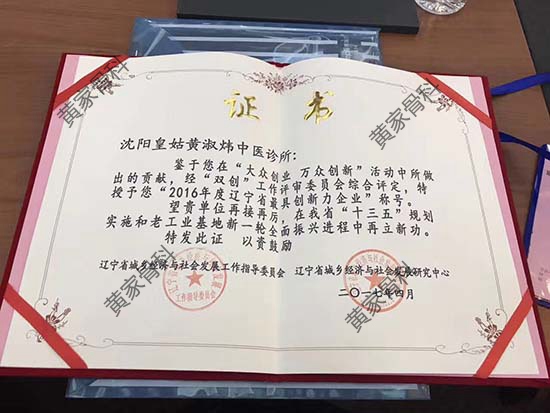 证 书
沈阳皇姑黄淑炜中医诊所：
鉴于您在“大众创业 万众创新”活动中所做
出的贡献，经“双创”工作评审委员会综合评定，特
授予您“2016年度辽宁省最具创新力企业”称号。
望贵单位再接再厉，在我省“十三五”规划
实施和老工业基地新一轮全面振兴进程中再立新功。
特发此证 以资鼓励
辽宁省城乡经济与社会发展工作指导委员会 辽宁省城乡经济与社会发展研究中心
工作指导委员会
二〇一七年四月
黄家骨科
黄家骨科
黄家骨科
黄家骨科
黄家骨科